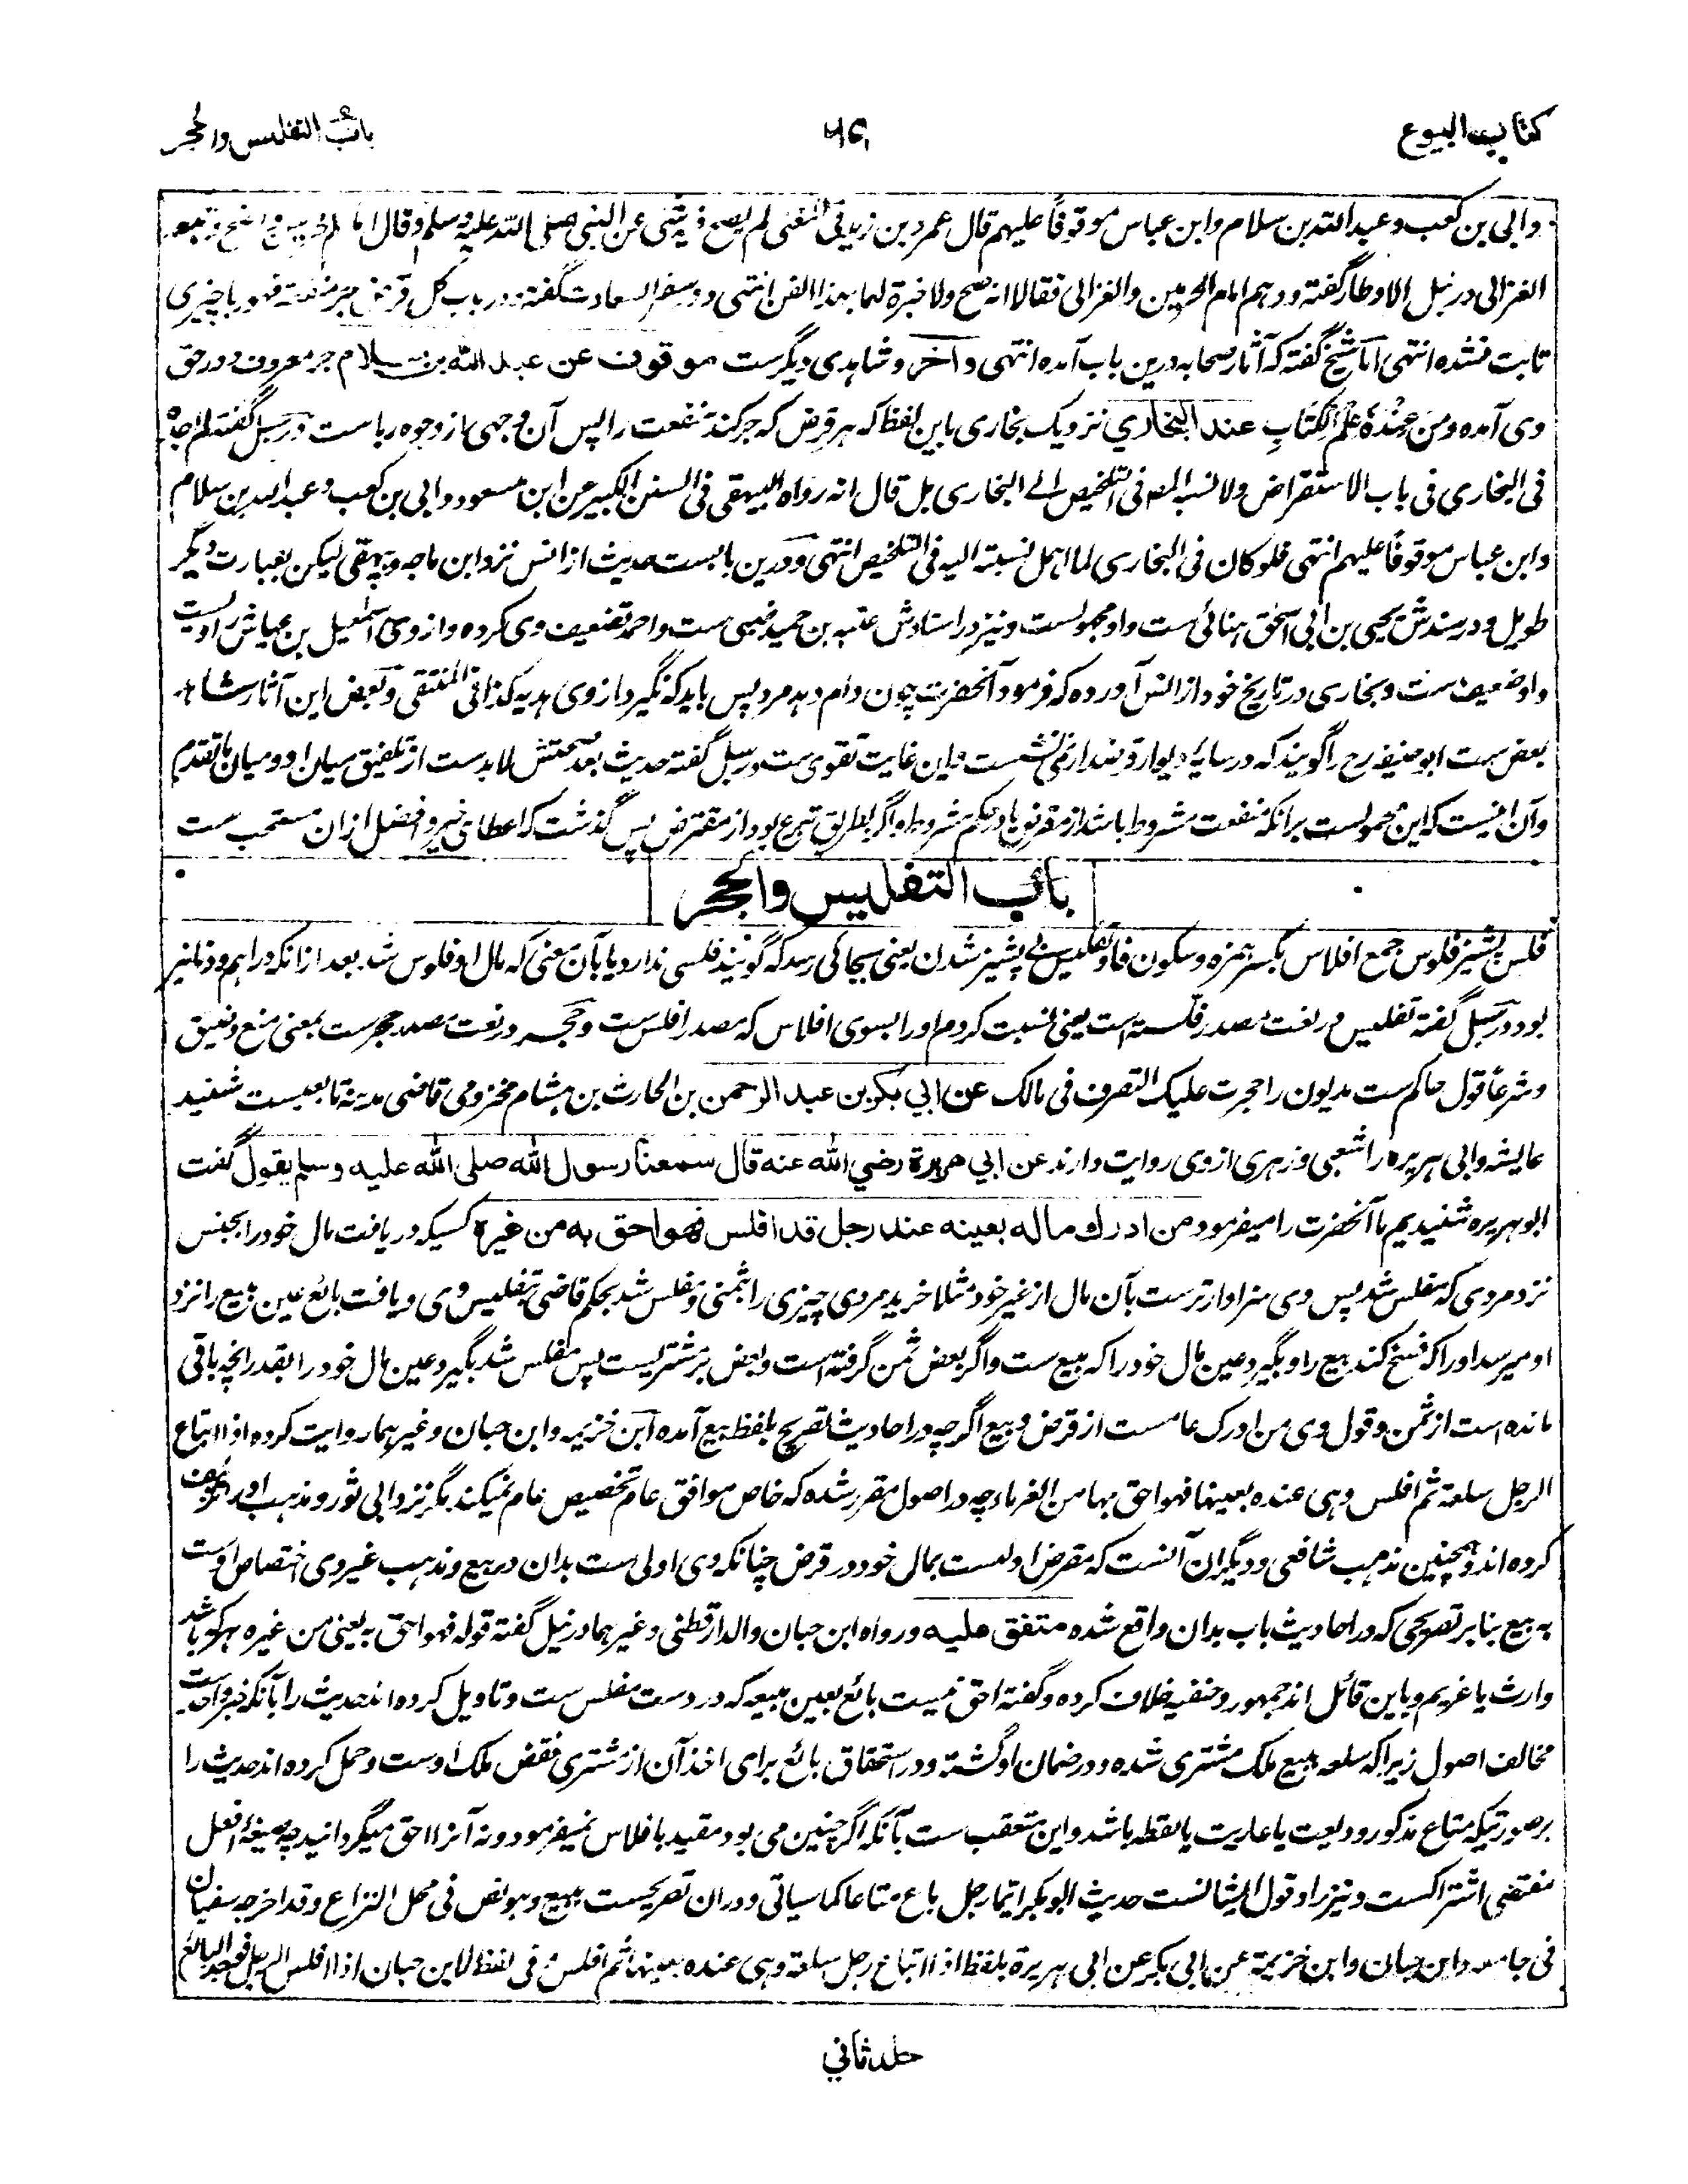 كتاب البيوع
باب التفليس والحجر
وابی بن کعب و عبد الله بن سلام وابن عباس موقوفاً علیهم قال عمرو بن زید فی المغنی لم یصح فیه شئ عن النبی صلی الله علیه وسلم وقال امام
الغزالی در نیل الاوطار گفته ووهم امام الحرمین والغزالی فقالا انه صح ولا خبرة لهما بهذا الفن انتهی و در سفر السعادت گفته و در باب کل قرض جر منفعة فهو ربا چیزی
ثابت نشده انتهی اما شیخ گفته که آثار صحابه درین باب آمده انتهی و آخر و شاهدی دیگرست موقوف عن عبد الله بن سلام جر معروف و در حق
وی آمده ومن عنده علم الكتاب عند البخاري نزدیک بخاری باین لفظ که هر قرض که جر کند منفعت را پس آن وجهی از وجوه رباست در سبل گفته لم اجده
فی البخاری فی باب الاستقراض ولا نسبه المصـ فی التلخیص الے البخاری بل قال انه رواه البیهقی فی السنن الکبیر عن ابن مسعود وابی بن کعب و عبد الله بن سلام
وابن عباس موقوفاً علیهم انتهی فلو کان فی البخاری لما اهمل نسبته الیه فی التلخیص انتهی و درین باب ست حدیث از انس نزد ابن ماجه و بیهقی لیکن بعبارت دیگر
طویل و در سندش یحیی بن ابی اسحق هنائی ست و او مجهولست و نیز در اسنادش عتبه بن حمید ضبی ست و احمد تضعیف وی کرده و از وی اسمعیل بن عیاش راویست
و او ضعیف ست و بخاری در تاریخ خود از انس آورده که فرمود آنحضرت چون دام دهد مرد پس باید که نگیرد از وی هدیه کذا فی المنتقی و بعض این آثار شاهد
بعض ست ابو حنیفه رح را گویند که در سایۀ دیوار قرضدار نمی نشست و این غایت تقوی ست در سبل گفته حدیث بعد صحتش لابدست از تلفیق میان او و میان ما تقدم
وآن اینست که این محمولست برانکه منفعت مشروط باشد از مقرض یا در حکم مشروط و اگر بطریق تبرع بود از مقترض پس گذشت که اعطای خیر و افضل ازان مستحب ست
باب التفليس والحجر
فلس پشیز فلوس جمع افلاس بکسر همزه و سکون فا و تفلیس بی پشیز شدن یعنی بجائی رسد که گویند فلسی ندارد یا بآن معنی که مال او فلوس شد بعد ازانکه دراهم و دنانیر
بود در سبل گفته تفلیس در لغت مصدر فلسته است یعنی نسبت کردم او را بسوی افلاس که مصدر افلس ست و حجر در لغت مصدر حجرست بمعنی منع و ضیق
و شرعاً قول حاکم ست مدیون را حجرت علیک التصرف فی مالک عن ابي بكر بن عبد الرحمن بن الحارث بن هشام مخزومی قاضی مدینة تابعیست شنید
عایشه و ابی هریره را شعبی و زهری از وی روایت دارند عن ابي هريرة رضي الله عنه قال سمعنا رسول الله صلى الله عليه وسلم يقول گفت
ابو هریره شنیدیم ما آنحضرت را میفرمود من ادرك ماله بعينه عند رجل قد افلس فهو احق به من غيره کسیکه دریافت مال خود را بجنس
نزد مردی که مفلس شد پس وی سزاوارترست بآن مال از غیر خود مثلا خرید مردی چیزی را بثمنی و مفلس شد بحکم قاضی بتفلیس وی و یافت بائع عین مبیع را نزد
او میرسد او را که فسخ کند بیع را و بگیرد عین مال خود را که مبیع ست و اگر بعض ثمن گرفته است و بعض بر مشتریست پس مفلس شد بگیرد عین مال خود را بقدر انچه باقی
مانده است از ثمن و قول وی من ادرک عامست از قرض و بیع اگرچه در احادیث تصریح بلفظ بیع آمده ابن خزیمه و ابن حبان و غیرهما روایت کرده اذا ابتاع
الرجل سلعة ثم افلس وهی عنده بعینها فهو احق بها من الغرماء چه در اصول مقرر شده که خاص موافق عام تخصیص عام نمیکند مگر نزد ابی ثور و مذهب او را
کرده اند و همچنین مذهب شافعی و دیگران آنست که مقرض اولیست بمال خود در قرض چنانکه وی اولی ست بدان در بیع و مذهب غیر وی اختصاص اوست
به بیع بنا بر تصریحی که در احادیث باب بدان واقع شده متفق عليه و رواه ابن حبان والدارقطنی و غیرهما در نیل گفته قوله فهو احق به یعنی من غیره هر که باشد
وارث یا غریم و باین قائل اند جمهور و حنفیه خلاف کرده و گفته احق نیست بائع بعین مبیعه که در دست مفلس ست و تاویل کرده اند حدیث را بآنکه خبر واحدست
مخالف اصول زیرا که سلعه ببیع ملک مشتری شده و در ضمان او گشته و در استحقاق بائع برای اخذ آن از مشتری نقض ملک اوست و حمل کرده اند حدیث را
بر صورتیکه متاع مذکور ودیعت یا عاریت یا لقطه باشد و این متعقب ست بآنکه اگر چنین می بود مقید بافلاس نمیفرمود و نه آنرا احق میگردانید چه صیغۀ افعل
مقتضی اشتراکست و نیز راد قول ایشانست حدیث ابو بکر ایما رجل باع متاعا کما سیاتی و دران تصریحست ببیع و هو نص فی محل النزاع و قد اخرجه سفیان
فی جامعه وابن حبان وابن خزیمة عن ابی بکر عن ابی هریرة بلفظ اذا ابتاع رجل سلعة وهی عنده بعینها ثم افلس و فی لفظ لابن حبان اذا افلس الرجل فوجد البائع
جلد ثاني